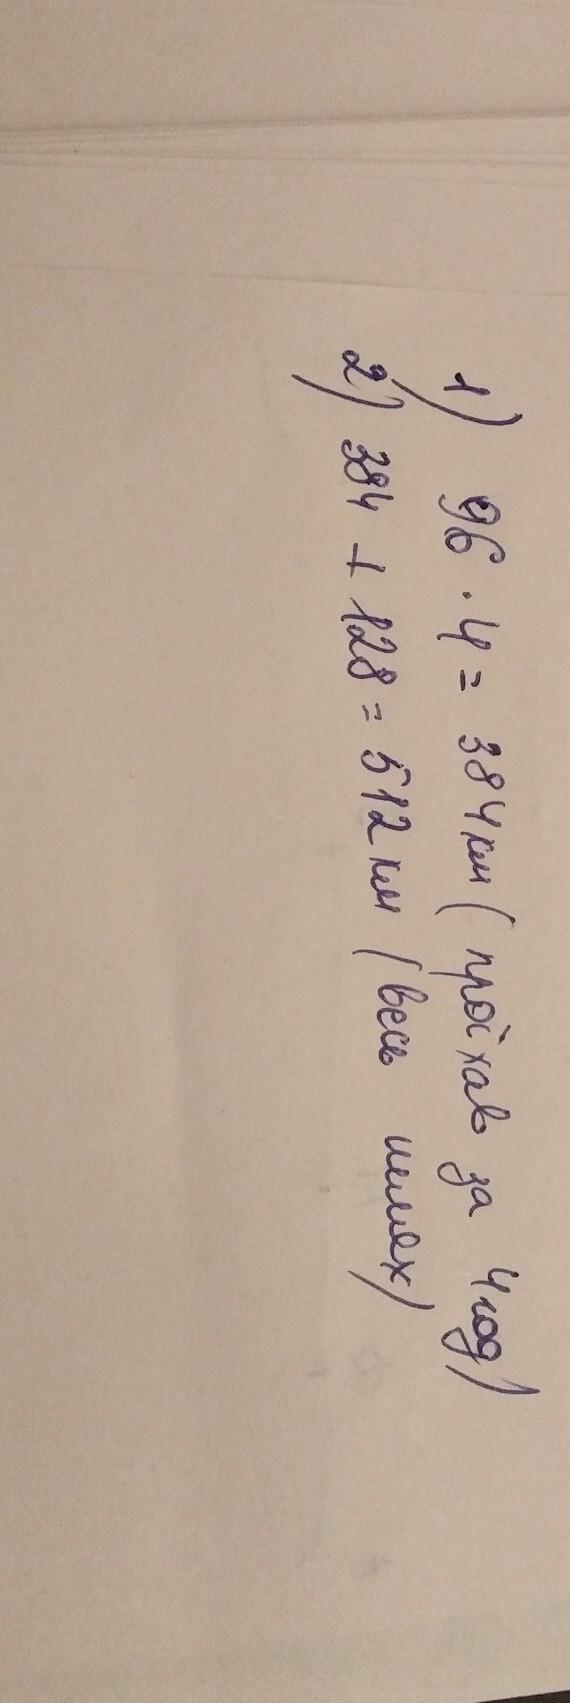 1) 96 · 4 = 384 км (проїхав за 4 год)
2) 384 + 128 = 512 км (весь шлях)